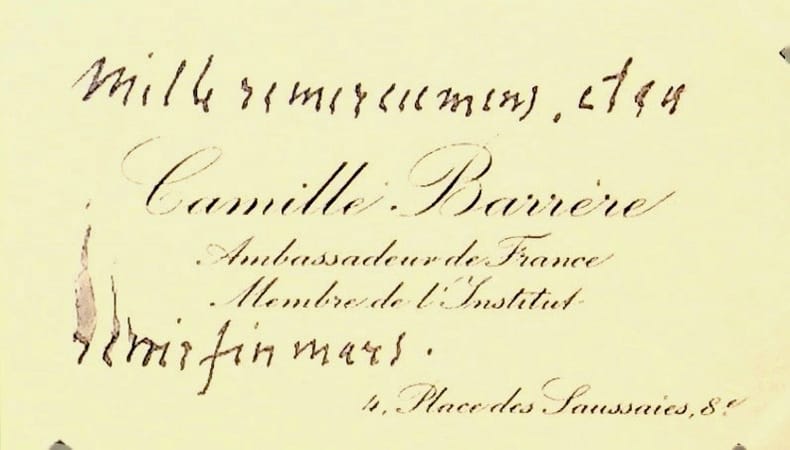 Mille remerciemens, et au
Camille Barrère
Ambassadeur de France
Membre de l'Institut
revoir fin mars.
4, Place des Saussaies, 8e